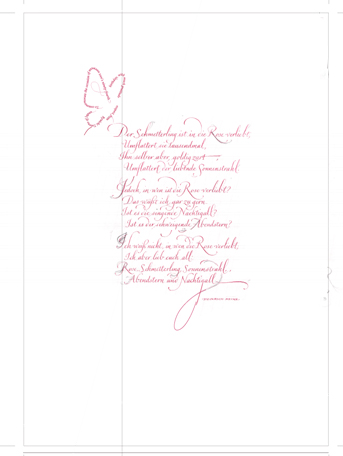 Der Schmetterling ist in die Rose verliebt,
Umflattert sie tausendmal,
Ihn selber aber, goldig zart,
Umflattert der liebende Sonnenstrahl.
Jedoch, in wen ist die Rose verliebt?
Das wüßt ich gar zu gern.
Ist es die singende Nachtigall?
Ist es der schweigende Abendstern?
Ich weiß nicht, in wen die Rose verliebt;
Ich aber lieb euch all:
Rose, Schmetterling, Sonnenstrahl,
Abendstern und Nachtigall.
HEINRICH HEINE